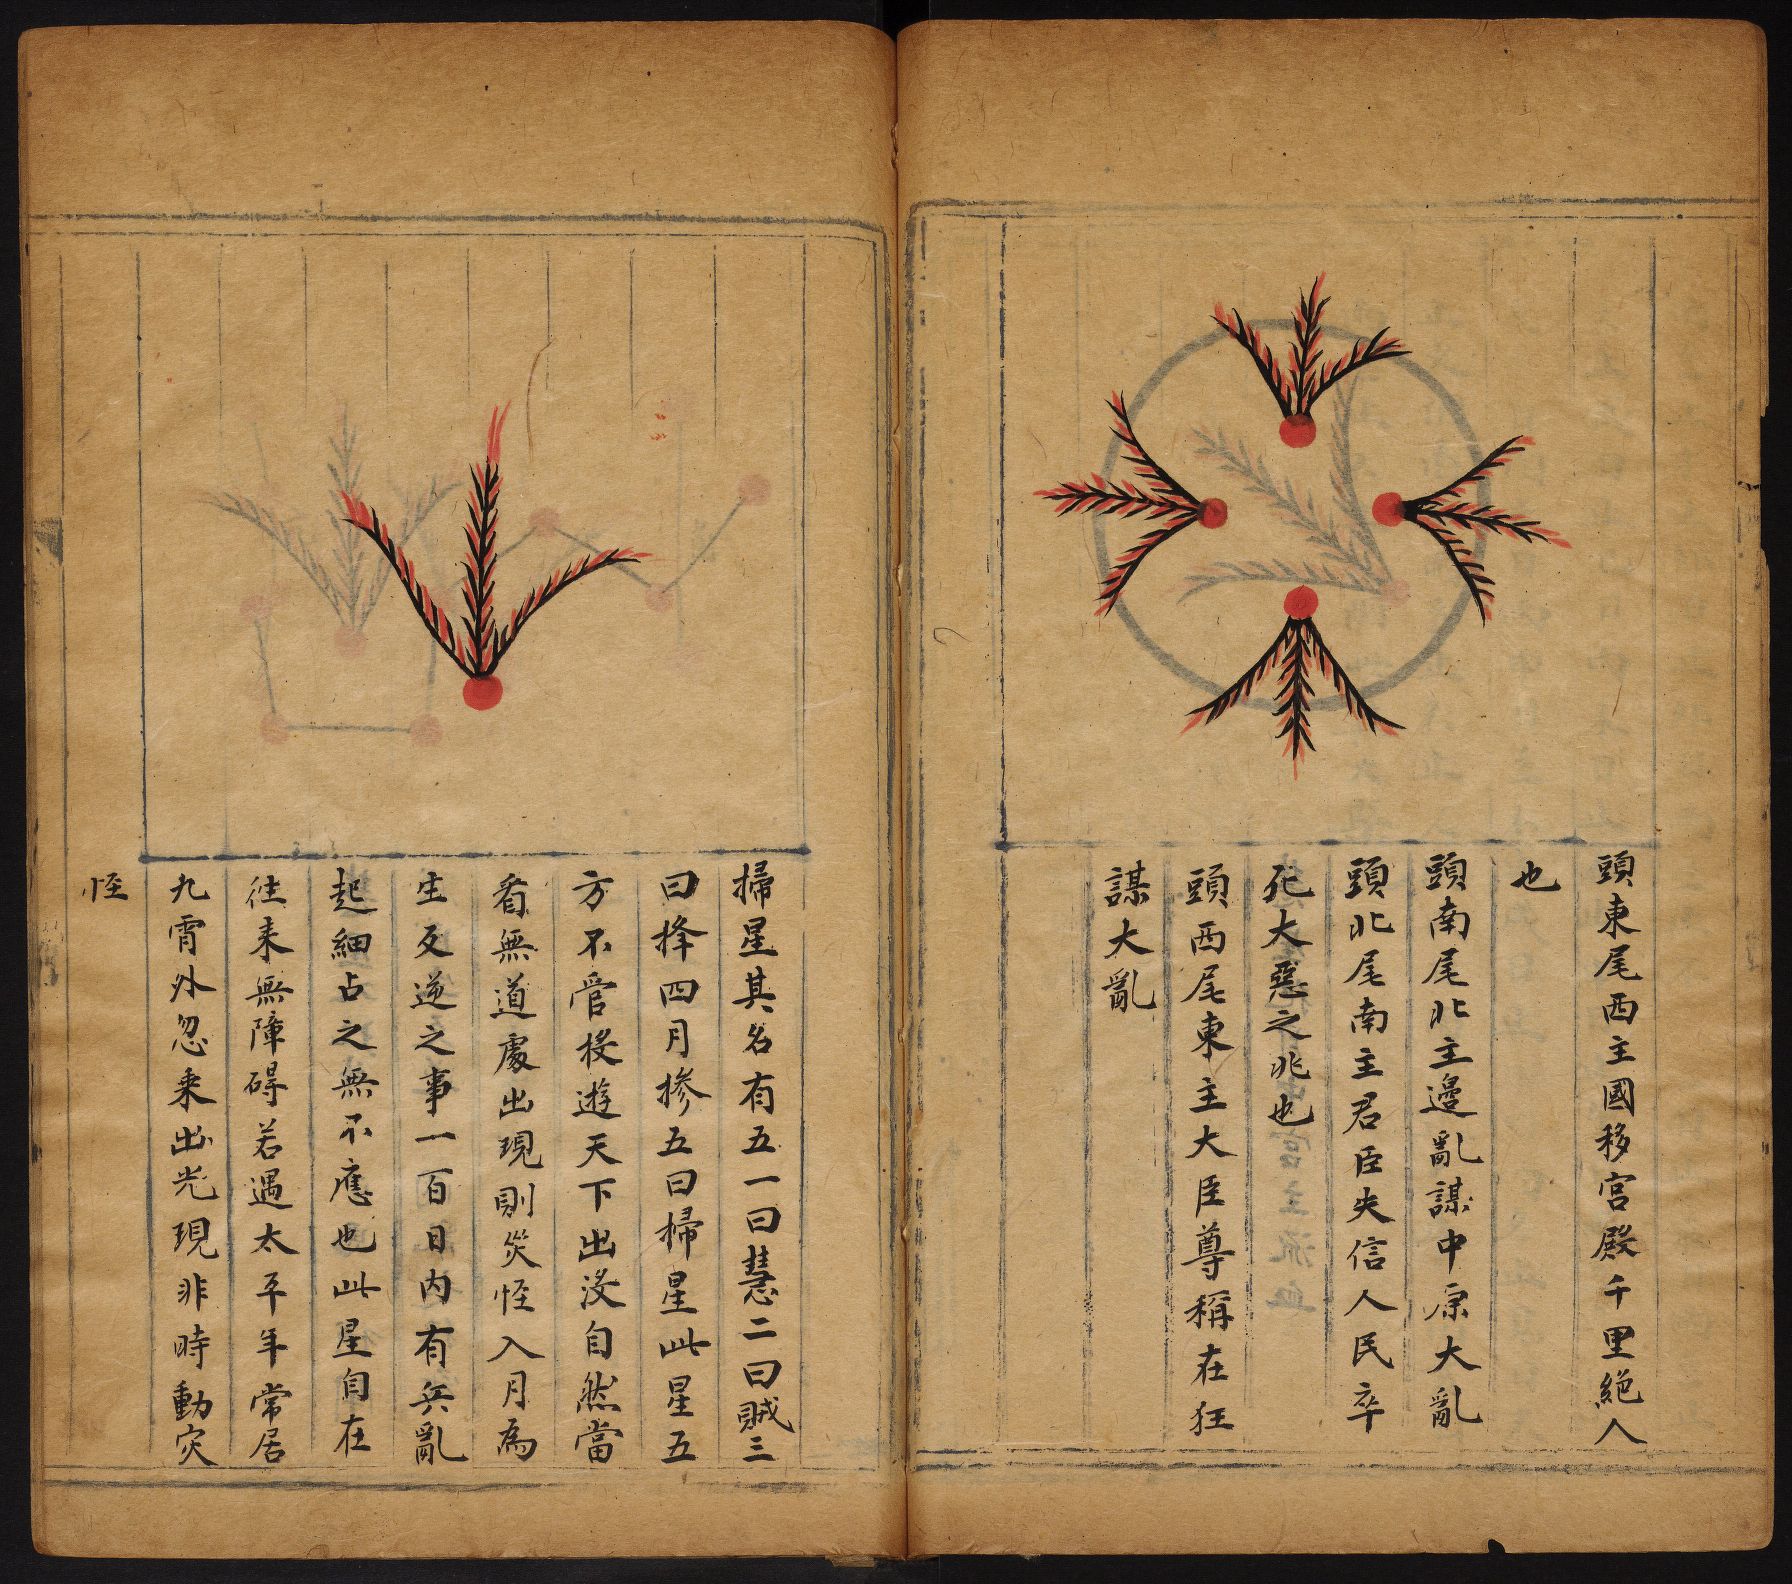 頭東尾西主國移宮殿千里絕人
也
頭南尾北主邊亂謀中原大亂
頭北尾南主君臣失信人民卒
死大惡之兆也
頭西尾東主大臣尊稱在狂
謀大亂
掃星其名有五一曰彗二曰賊三
曰捀四月摻五曰掃星此星五
方不管投遊天下出没自然當
看無道處出現則災怪入月為
生反逆之事一百日内有兵亂
起細占之無不應也此星自在
往来無障碍若遇太平年常居
九霄外忽乗出光現非時動灾
怪